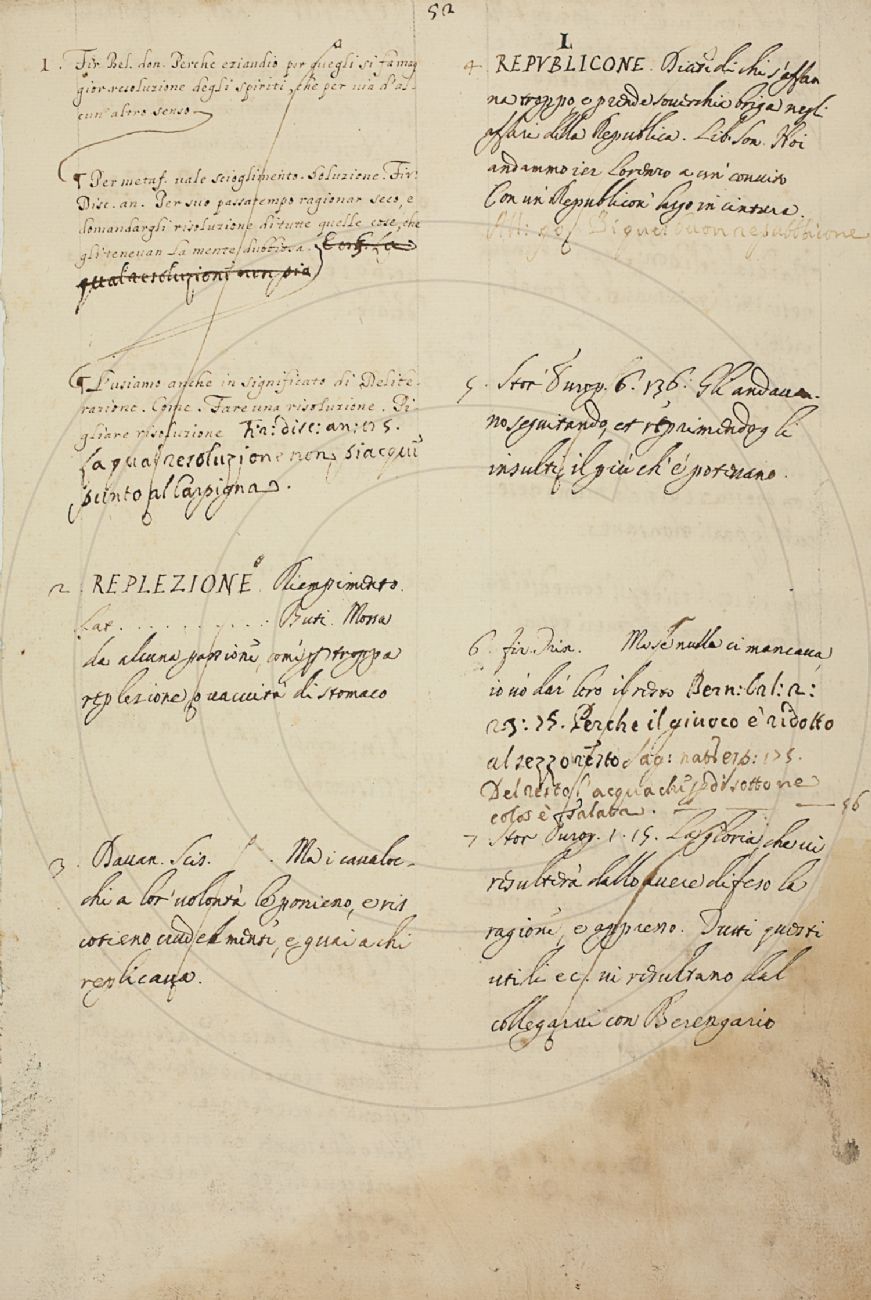 52
1. Fir. Bel. don. Perche eziandio per quegli si fa mag
gior resoluzione degli spiriti, che per via d'al-
cun' altro senso.
¶ Per metaf. vale scioglimento. Soluzione. Fir.
Disc. an. Per suo passatempo ragionar seco, e
domandargli risoluzione di tutte quelle cose, che
gli tenevan la mente dubbiosa.
qual resoluzione non più
¶ L'usiamo anche in significato di Delibe-
razione. Come. Fare una risoluzione. Pi-
gliare risoluzione. Fir: disc: an: 175.
La qual resoluzione non piacqui
punto al Carpigna.
2. REPLEZIONE. Riempimento.
Lat. . . . . . . . . . . Buti. Mossa
da alcuna passione, come p troppa
replezione, o vacuità di stomaco
3. Davan. Scis. Ma i cavaloc-
chi a lor' volontà le ponieno, e ris
cotieno crudelmente, e guai a chi
replicava.
I
4 REPVBLICONE. Dicesi di chi s'affan
na troppo, e prende soverchie brige negli
affari della Republica. Lib. Son. Noi
andammo ier Lorenzo a un' convito
Con un' Republicon' largo in cintura
Di quel buon republicone
5. Stor. Europ. 6. 136. Gli andava-
no seguitando, et reprimendo gli
insulti, il più ch' e' potevano.
6. fir. Trin. Ma se nulla ci mancava,
io vo dar loro il resto Bern: Orl: 2:
23: 75. Perche il giuoco è ridotto
al sezzo resto Sag: nat: esp: 175.
Del resto l'acqua che p di sotto ne
colò è salata. 56
7 Stor. Europ. 1. 15. La gloria che vi
resulterà dallo avere difeso la
ragione, e appresso. Tutti questi
utili ec. vi resultano dal
collegarvi con Berengario